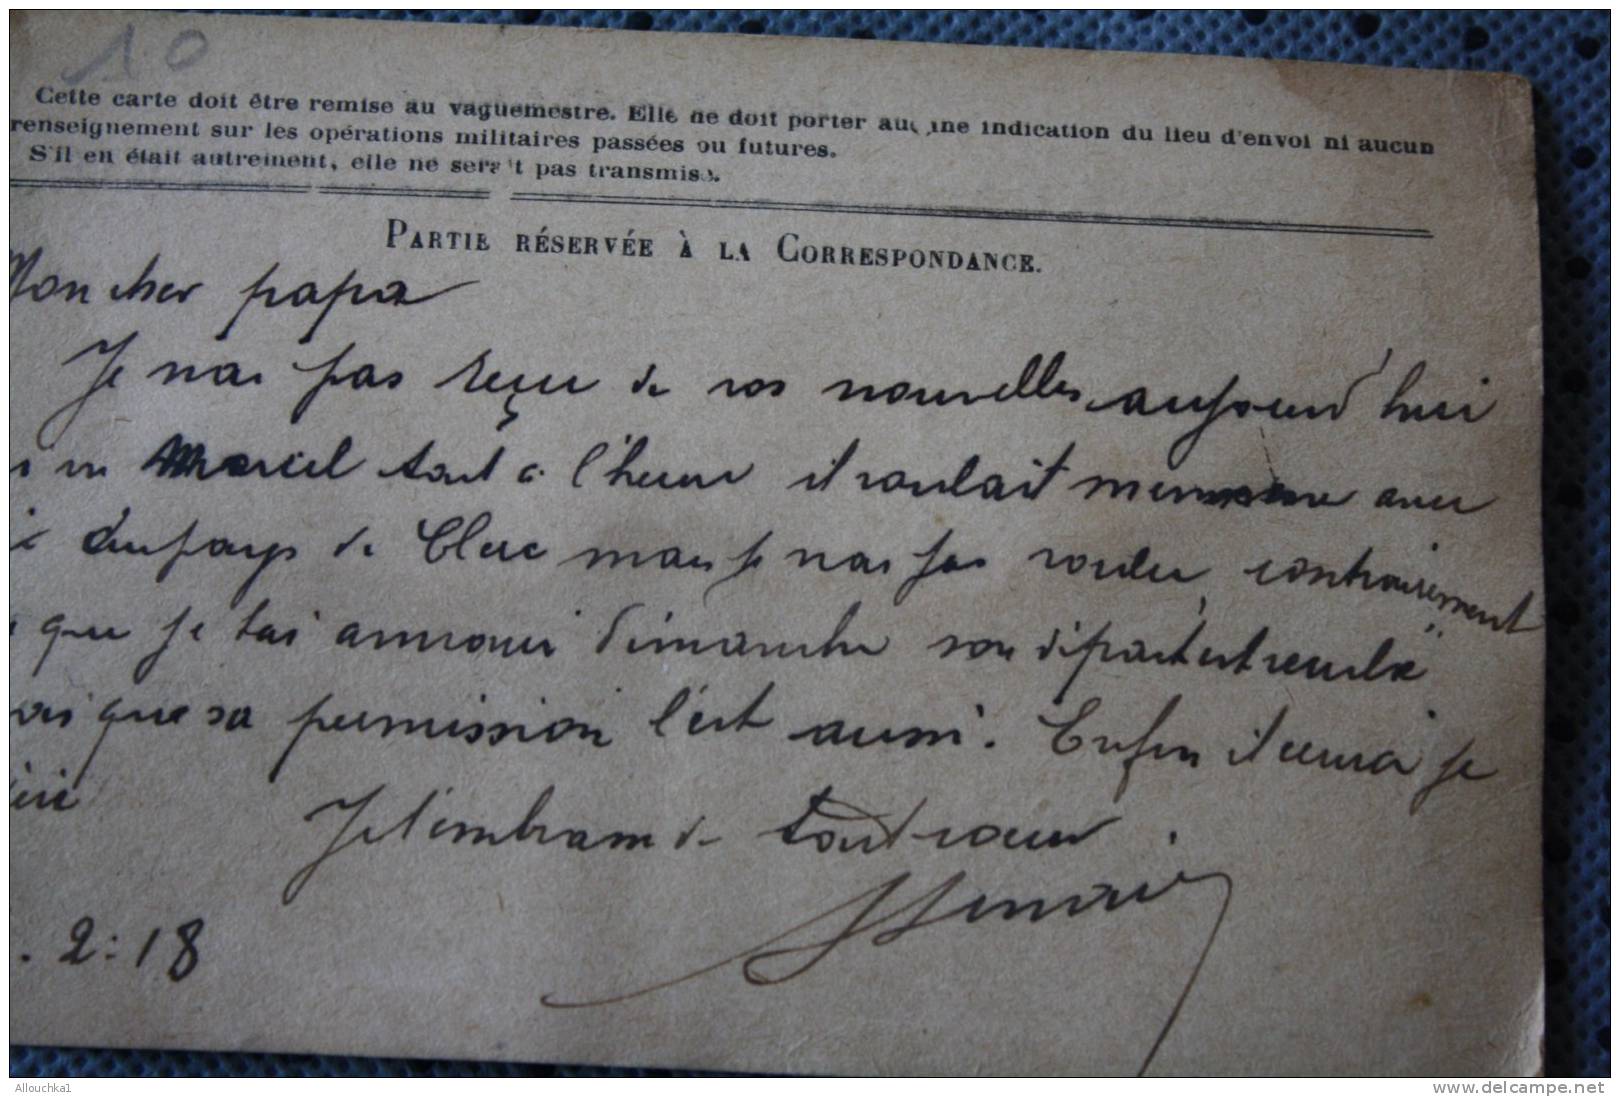 10
Cette carte doit être remise au vaguemestre. Elle ne doit porter aucune indication du lieu d'envoi ni aucun
renseignement sur les opérations militaires passées ou futures.
S'il en était autrement, elle ne serait pas transmise.
PARTIE RÉSERVÉE À LA CORRESPONDANCE.
Mon cher papa
Je nai pas reçu de vos nouvelles aujourd'hui
vu Marcel tout à l'heure il voulait avec
de Clerc mais je nai pas voulu, contrairement
que je tai annoncé dimanche son départ est reculé
que sa permission l'est aussi. Enfin il aura je
Je t'embrasse de tout cœur
2:18
Allouchka1
www.delcampe.net